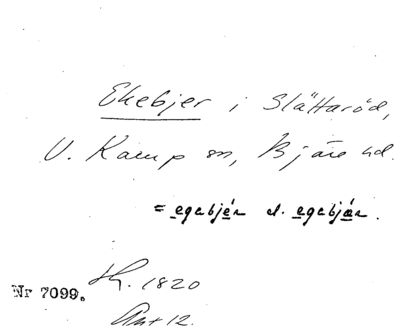 Ekebjer i Slättaröd,
V. Karup sn, Bjäre hd.
= egabjér el. egabjär.
Nr 7099. 1820
Ant 12.